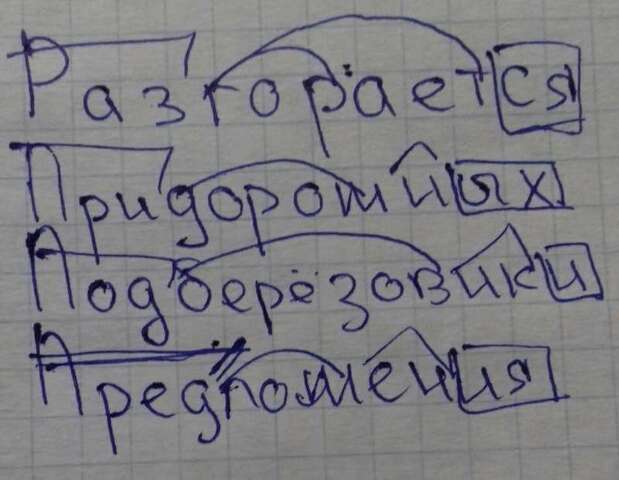 Разгорается
Придорожных
Подберёзовики
Предложения